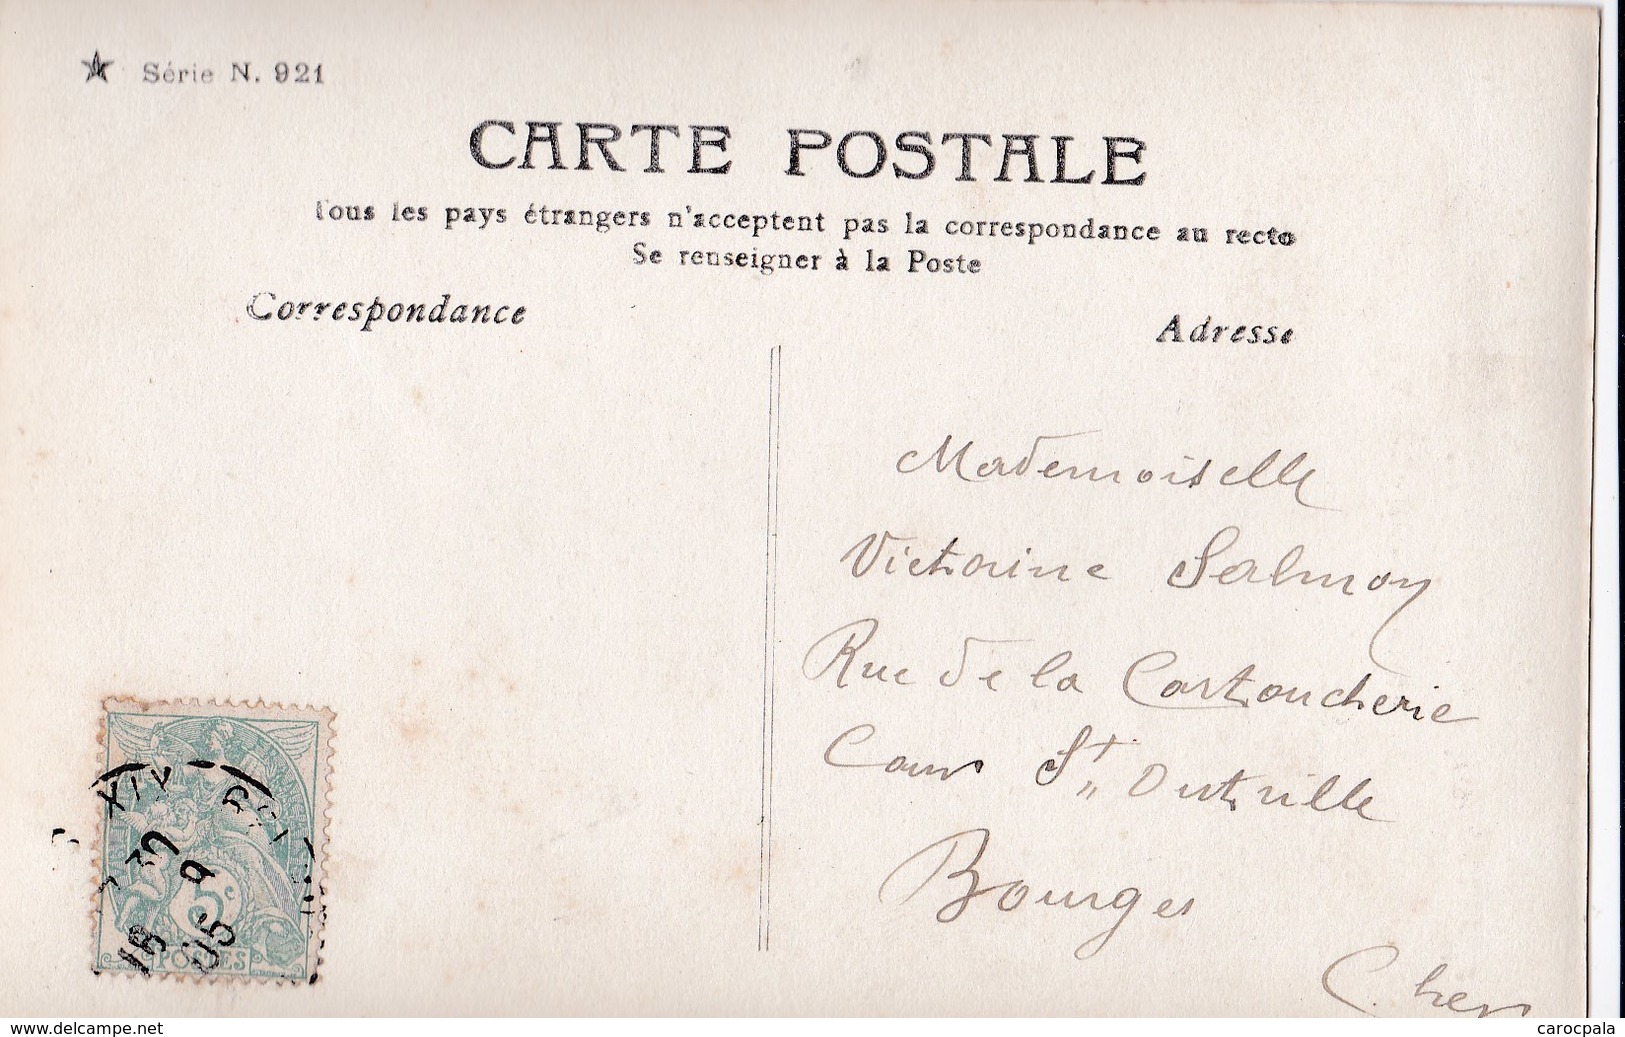 Série N. 921
CARTE POSTALE
Tous les pays étrangers n'acceptent pas la correspondance au recto
Se renseigner à la Poste
Correspondance
Adresse
Mademoiselle
Victorine Salmon
Rue de la Cartoucherie
Cour St Outrille
Bourges
Cher
5c
POSTES
18
9
05
www.delcampe.net
carocpala